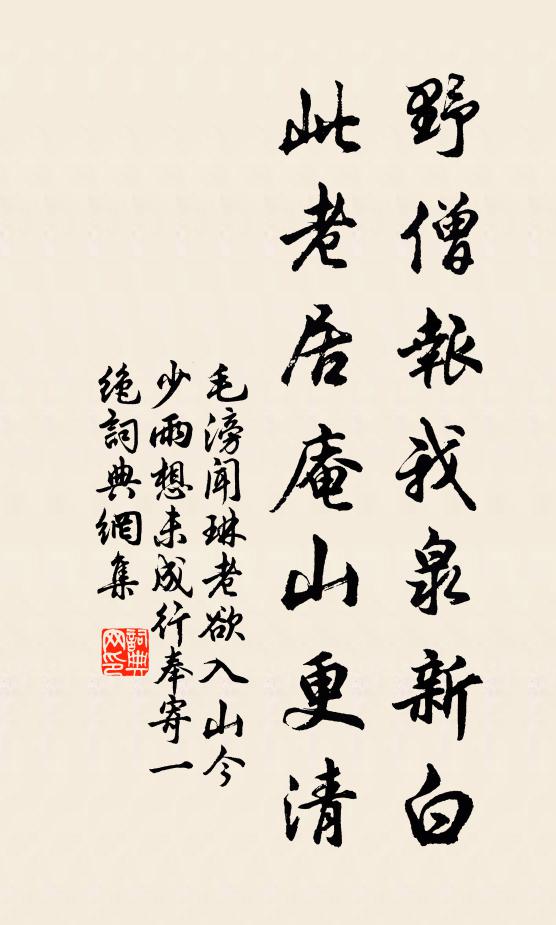 野僧報我泉新白
此老居庵山更清
毛滂聞琳老欲入山今
少雨想未成行奉寄一
絶詞典網集
詞典
网印